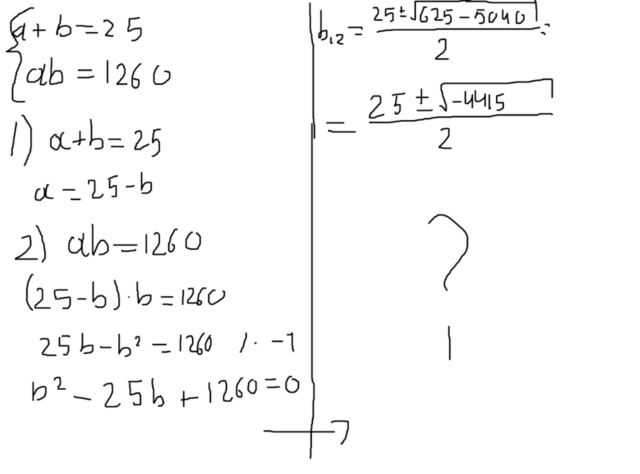 a+b=25
ab=1260
1) a+b=25
a=25-b
2) ab=1260
(25-b)·b=1260
25b-b²=1260 /· -1
b²-25b+1260=0
b₁,₂=(25±√(625-5040))/2=
=(25±√(-4415))/2
?